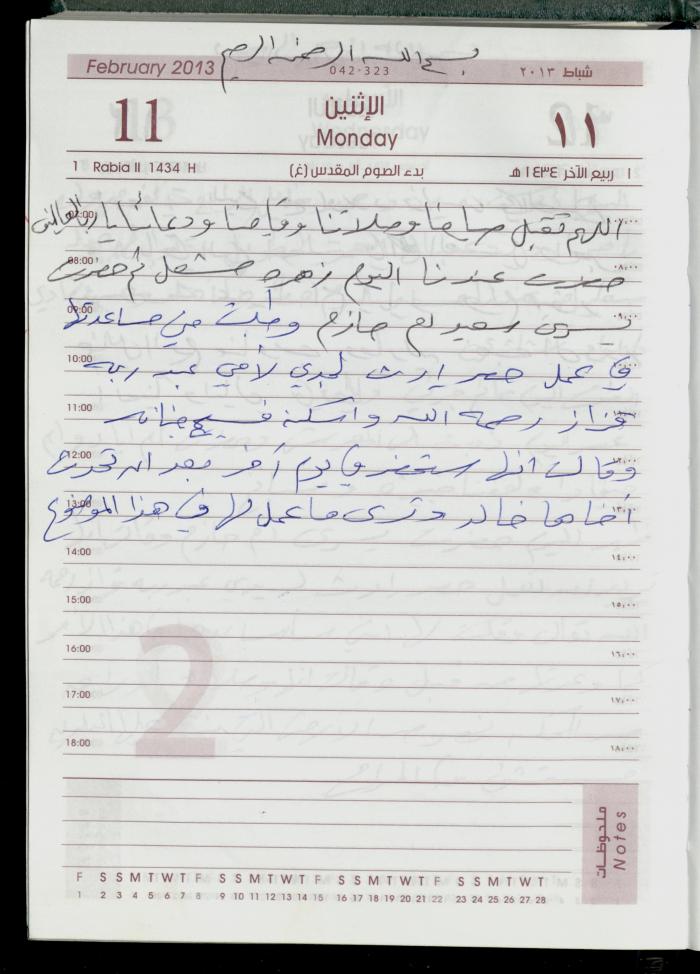 بسم الله الرحمن الرحيم
February 2013
042-323
شباط ٢٠١٣
11
الإثنين
Monday
١١
1 Rabia II 1434 H
بدء الصوم المقدس (غ)
١ ربيع الآخر ١٤٣٤ هـ
07:00 اللهم تقبل صيامنا وصلاتنا وقيامنا ودعائنا يا رب العالمين ٠٧،٠٠
08:00 حضرت عندنا اليوم زهره مشعل ثم حضرت ٠٨،٠٠
09:00 يسرى سعيد ام حازم وطلبت مني مساعدتها ٠٩،٠٠
10:00 في عمل حصر ارث لجدي لأمي عبد ربه
11:00 قزاز رحمه الله واسكنه فسيح جنانه
12:00 وقالت انها ستحضر في يوم آخر بعد ان تحدث
13:00 أخاها خالد وترى ما عمل لها في هذا الموضوع ١٣،٠٠
14:00 ١٤،٠٠
15:00 ١٥،٠٠
16:00 ١٦،٠٠
17:00 ١٧،٠٠
18:00 ١٨،٠٠
2
ملحوظات
Notes
F S S M T W T F S S M T W T F S S M T W T F S S M T W T
1 2 3 4 5 6 7 8 9 10 11 12 13 14 15 16 17 18 19 20 21 22 23 24 25 26 27 28